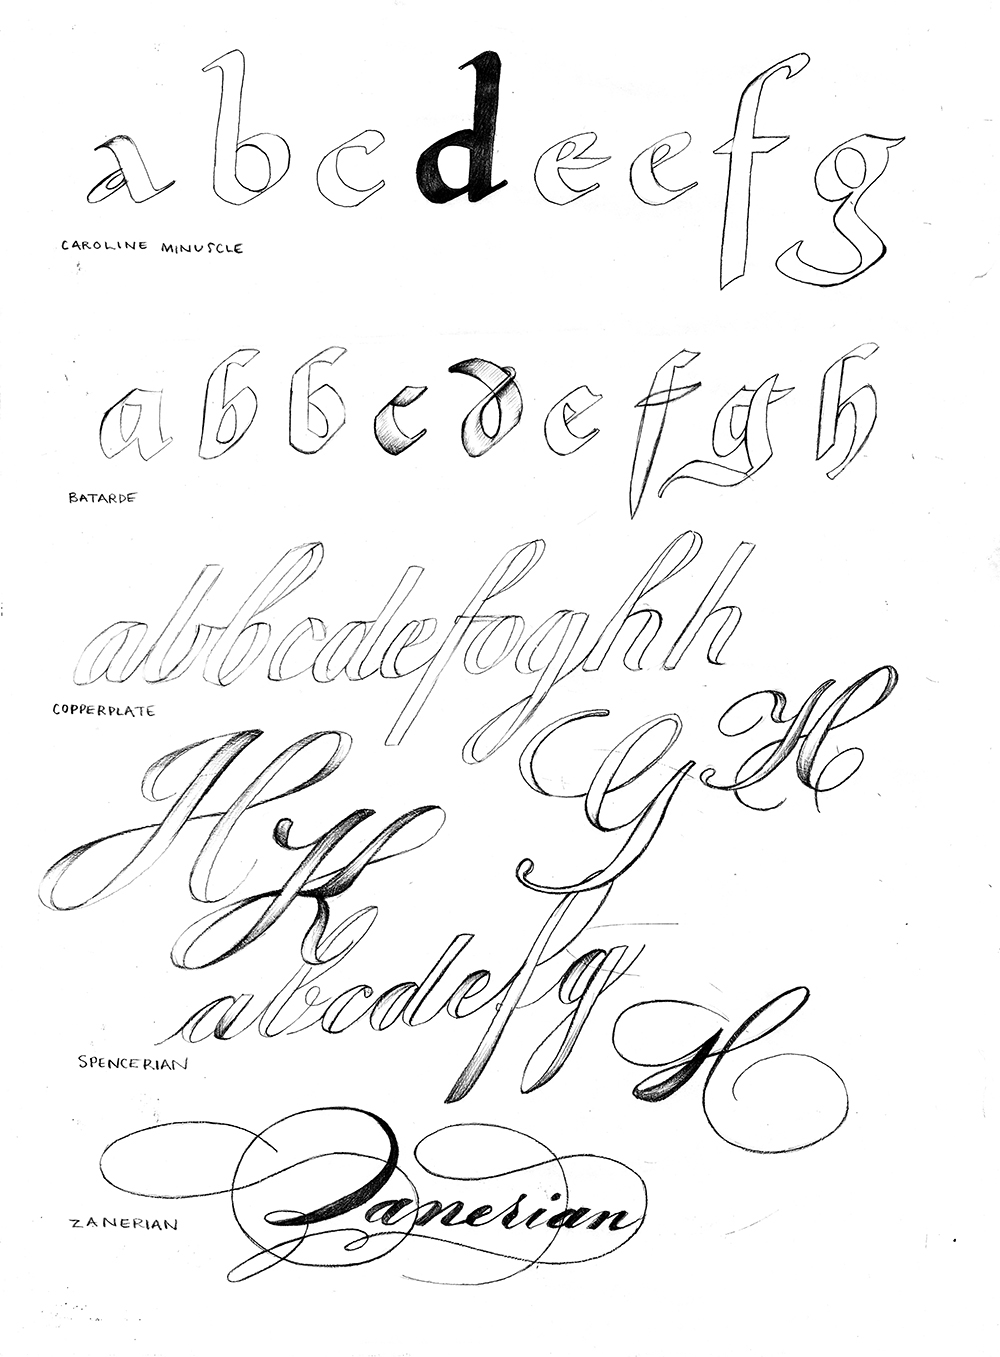 abcdeefg
CAROLINE MINUSCLE
abbcdefgh
BATARDE
abbcdefoghh
COPPERPLATE
H G H
K
abcdefg
H
SPENCERIAN
Zanerian
ZANERIAN